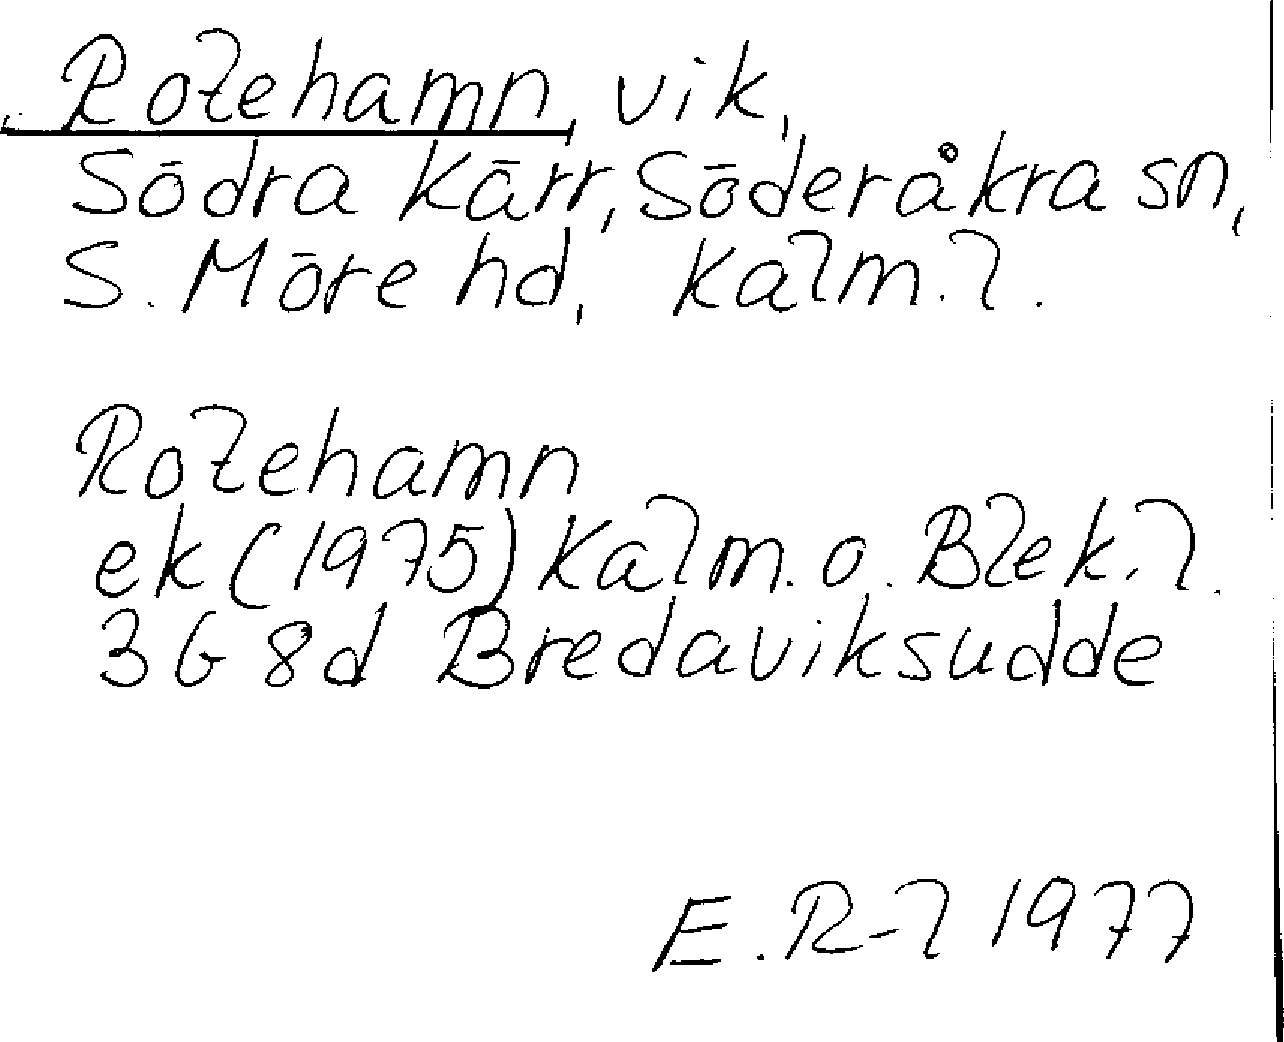 Rolehamn, vik,
Södra Kärr, Söderåkra sn,
S. Möre hd, Kalm.l.
Rolehamn
ek (1975) Kalm. o. Blek.l.
3G 8d Bredaviksudde
E. R-l 1977